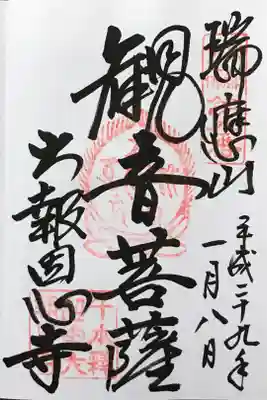 瑞應山
平成二十九年
一月八日
観音菩薩
大報恩寺